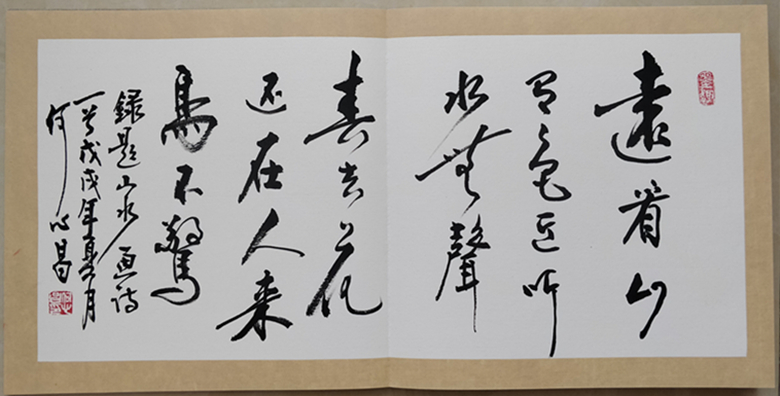 遠看山
有色近听
水無聲
春去花
还在人来
鳥不驚
録題山水画詩
一首戊戌年夏月
何心昌